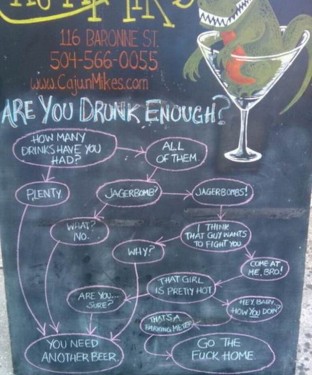 116 BARONNE ST.
504-566-0055
www.CajunMikes.com
ARE YOU DRUNK ENOUGH?
HOW MANY
DRINKS HAVE YOU
HAD?
ALL
OF THEM.
PLENTY
JAGERBOMB?
JAGERBOMBS!
WHAT?
NO.
I THINK
THAT GUY WANTS
TO FIGHT YOU
WHY?
COME AT
ME, BRO!
THAT GIRL
IS PRETTY HOT
ARE YOU...
SURE?
HEY BABY,
HOW YOU DOIN?
THAT'S A
PARKING METER
YOU NEED
ANOTHER BEER.
GO THE
FUCK HOME.